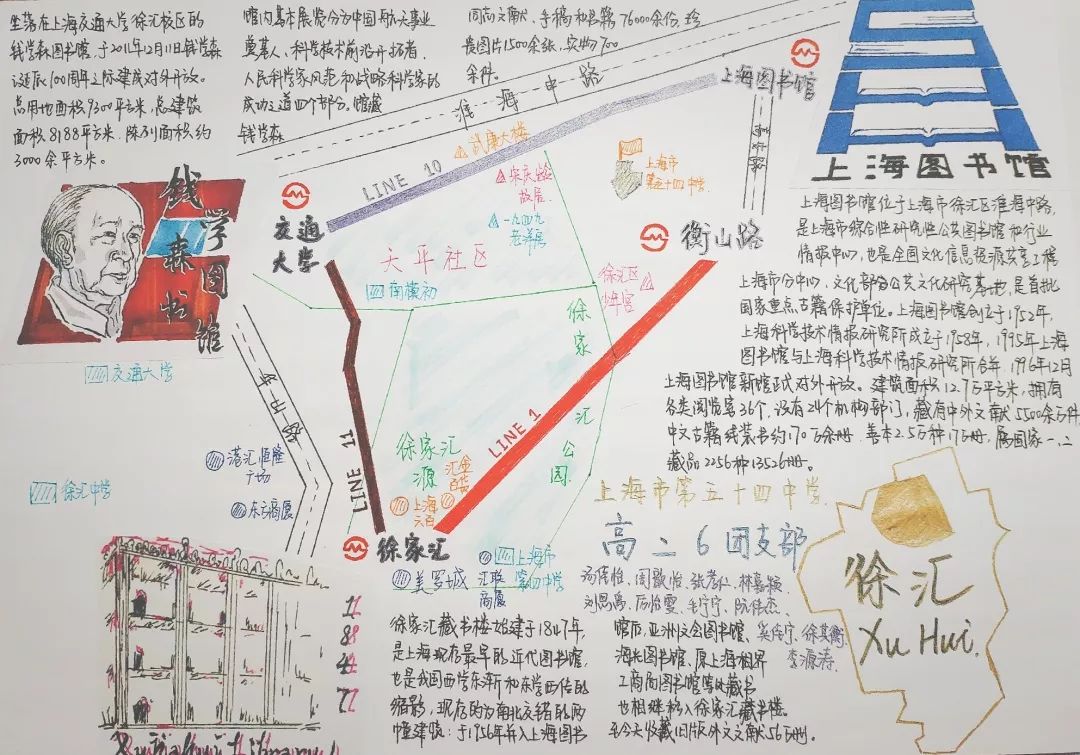 坐落在上海交通大学徐汇校区的
钱学森图书馆,于2011年12月11日钱学森
诞辰100周年之际建成对外开放。
占用地面积9300平方米,总建筑
面积8188平方米,陈列面积约
3000余平方米。
馆内基本展览分为中国航天事业
奠基人,科学技术前沿开拓者,
人民科学家风范和战略科学家的
成功之道四个部分,馆藏
钱学森
同志文献、手稿和书籍76000余份,珍
贵图片1500余张,实物700
余件。
淮海中路
上海图书馆
上海图书馆
LINE 10
武康大楼
宋庆龄
故居
一九四九
老洋房
上海市
第五十四中学
交通
大学
天平社区
南模初
衡山路
徐汇区
少年宫
钱学森图书馆
交通大学
徐家汇公园
LINE 11
LINE 1
徐家汇
源
汇金
百货
上海
六百
港汇恒隆
广场
东方商厦
徐汇中学
徐家汇
美罗城
汇联
商厦
上海市
第四中学
上海图书馆位于上海市徐汇区淮海中路,
是上海市综合性研究性公共图书馆和行业
情报中心,也是全国文化信息资源共享工程
上海市分中心,文化部公共文化研究基地,是首批
国家重点古籍保护单位。上海图书馆创立于1952年,
上海科学技术情报研究所成立于1958年,1995年上海
图书馆与上海科学技术情报研究所合并,1996年12月
上海图书馆新馆正式对外开放。建筑面积12.7万平方米,拥有
各类阅览室36个,设有24个机构部门,藏有中外文献5500余万件,
中文古籍线装书约170万余册,善本2.5万种17万册,属国家一、二
藏品2256种13526册。
上海市第五十四中学
高二6团支部
林嘉颖
刘思禹、
阮伟杰、
徐汇
Xu Hui
1847
徐家汇藏书楼始建于1847年,
是上海现存最早的近代图书馆,
也是我国西学东渐和东学西传的
缩影,现存的为南北交错的两
幢建筑;于1956年并入上海图书
馆后,亚洲文会图书馆、
海光图书馆、原上海租界
工商局图书馆等的藏书
也相继移入徐家汇藏书楼。
至今收藏旧版外文文献56万册。